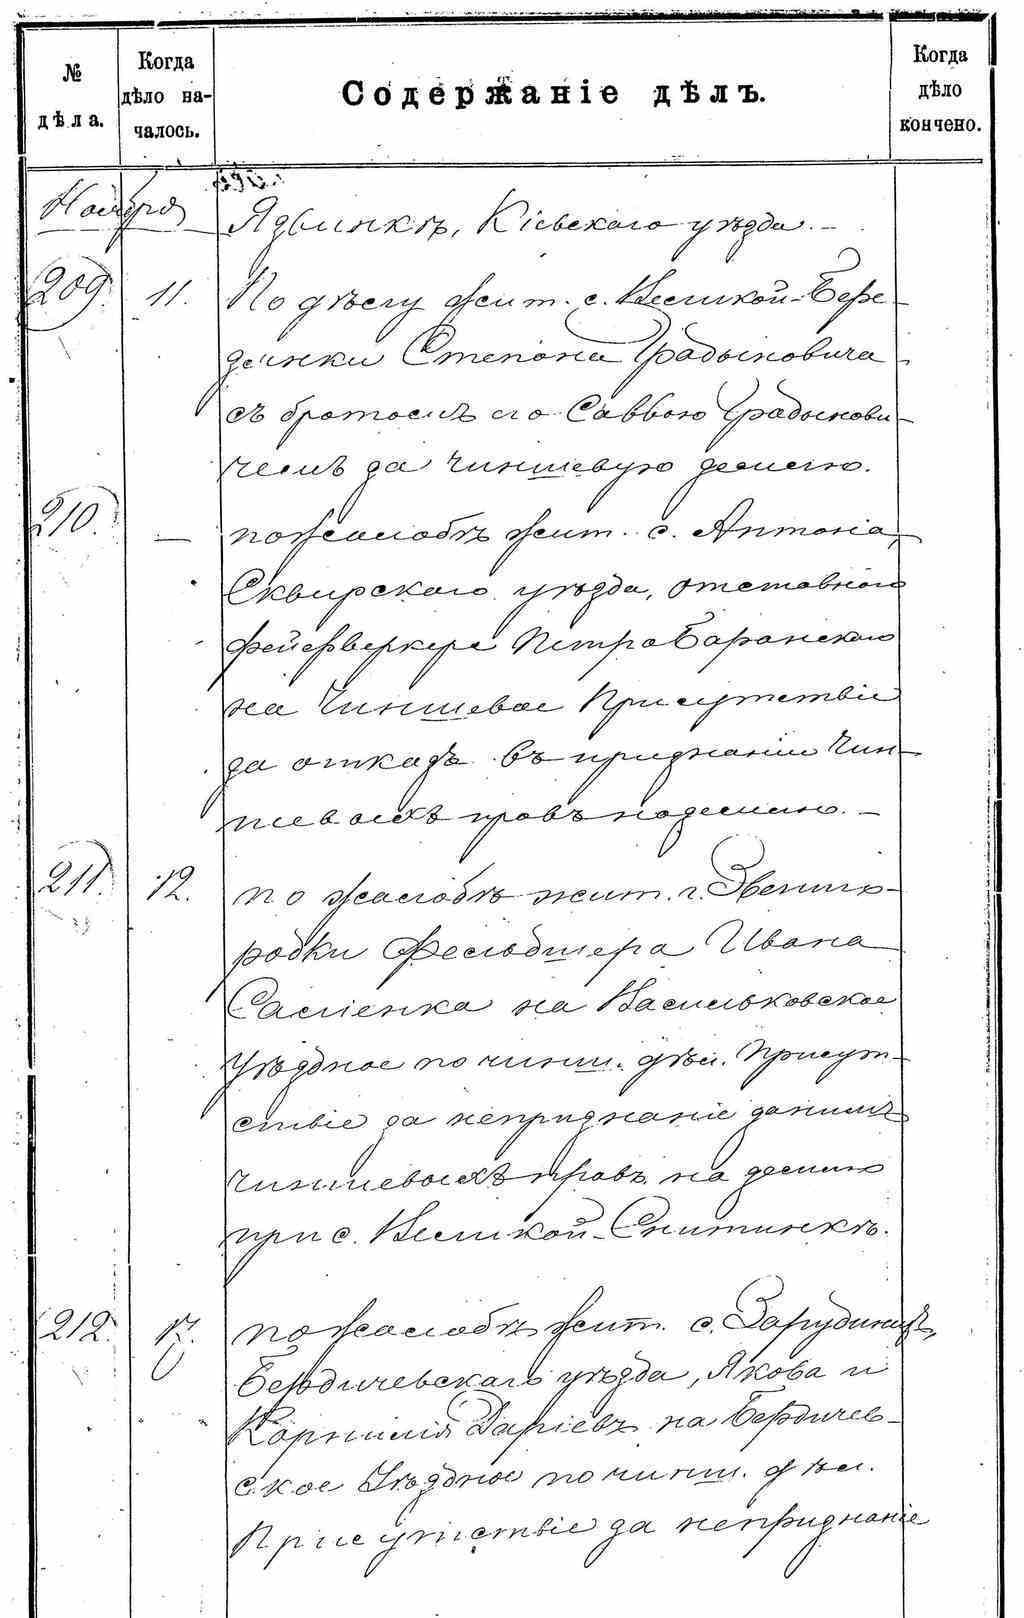 № дѣла.
Когда дѣло началось.
Содержаніе дѣлъ.
Когда дѣло кончено.
Ноября
Ядвинкѣ, Кіевскаго уѣзда. –
209. 11. По дѣлу жит. с. Великой-Бере-
зянки Степана Градыновича
съ братомъ его Саввою Градынови-
чемъ за чиншевую землю.
210. — по жалобѣ жит. с. Антона,
Сквирскаго уѣзда, отставного
фейерверкера Петра Баранскаго
на Чиншевое Присутствіе
за отказъ въ признаніи чин-
шевыхъ правъ на землю. –
211. 12. по жалобѣ жит. г. Звениго-
родки Фельдшера Ивана
на Васильковское
Уѣздное по чинш. дѣл. Присут-
ствіе за непризнаніе за нимъ
чиншевыхъ правъ на землю
при с. Великой-Снитинкѣ.
212. 17. по жалобѣ жит. с. Зарудинцъ,
Бердичевскаго уѣзда, Якова и
Корнилія на Бердичев-
ское Уѣздное по чинш. дѣл.
Присутствіе за непризнаніе